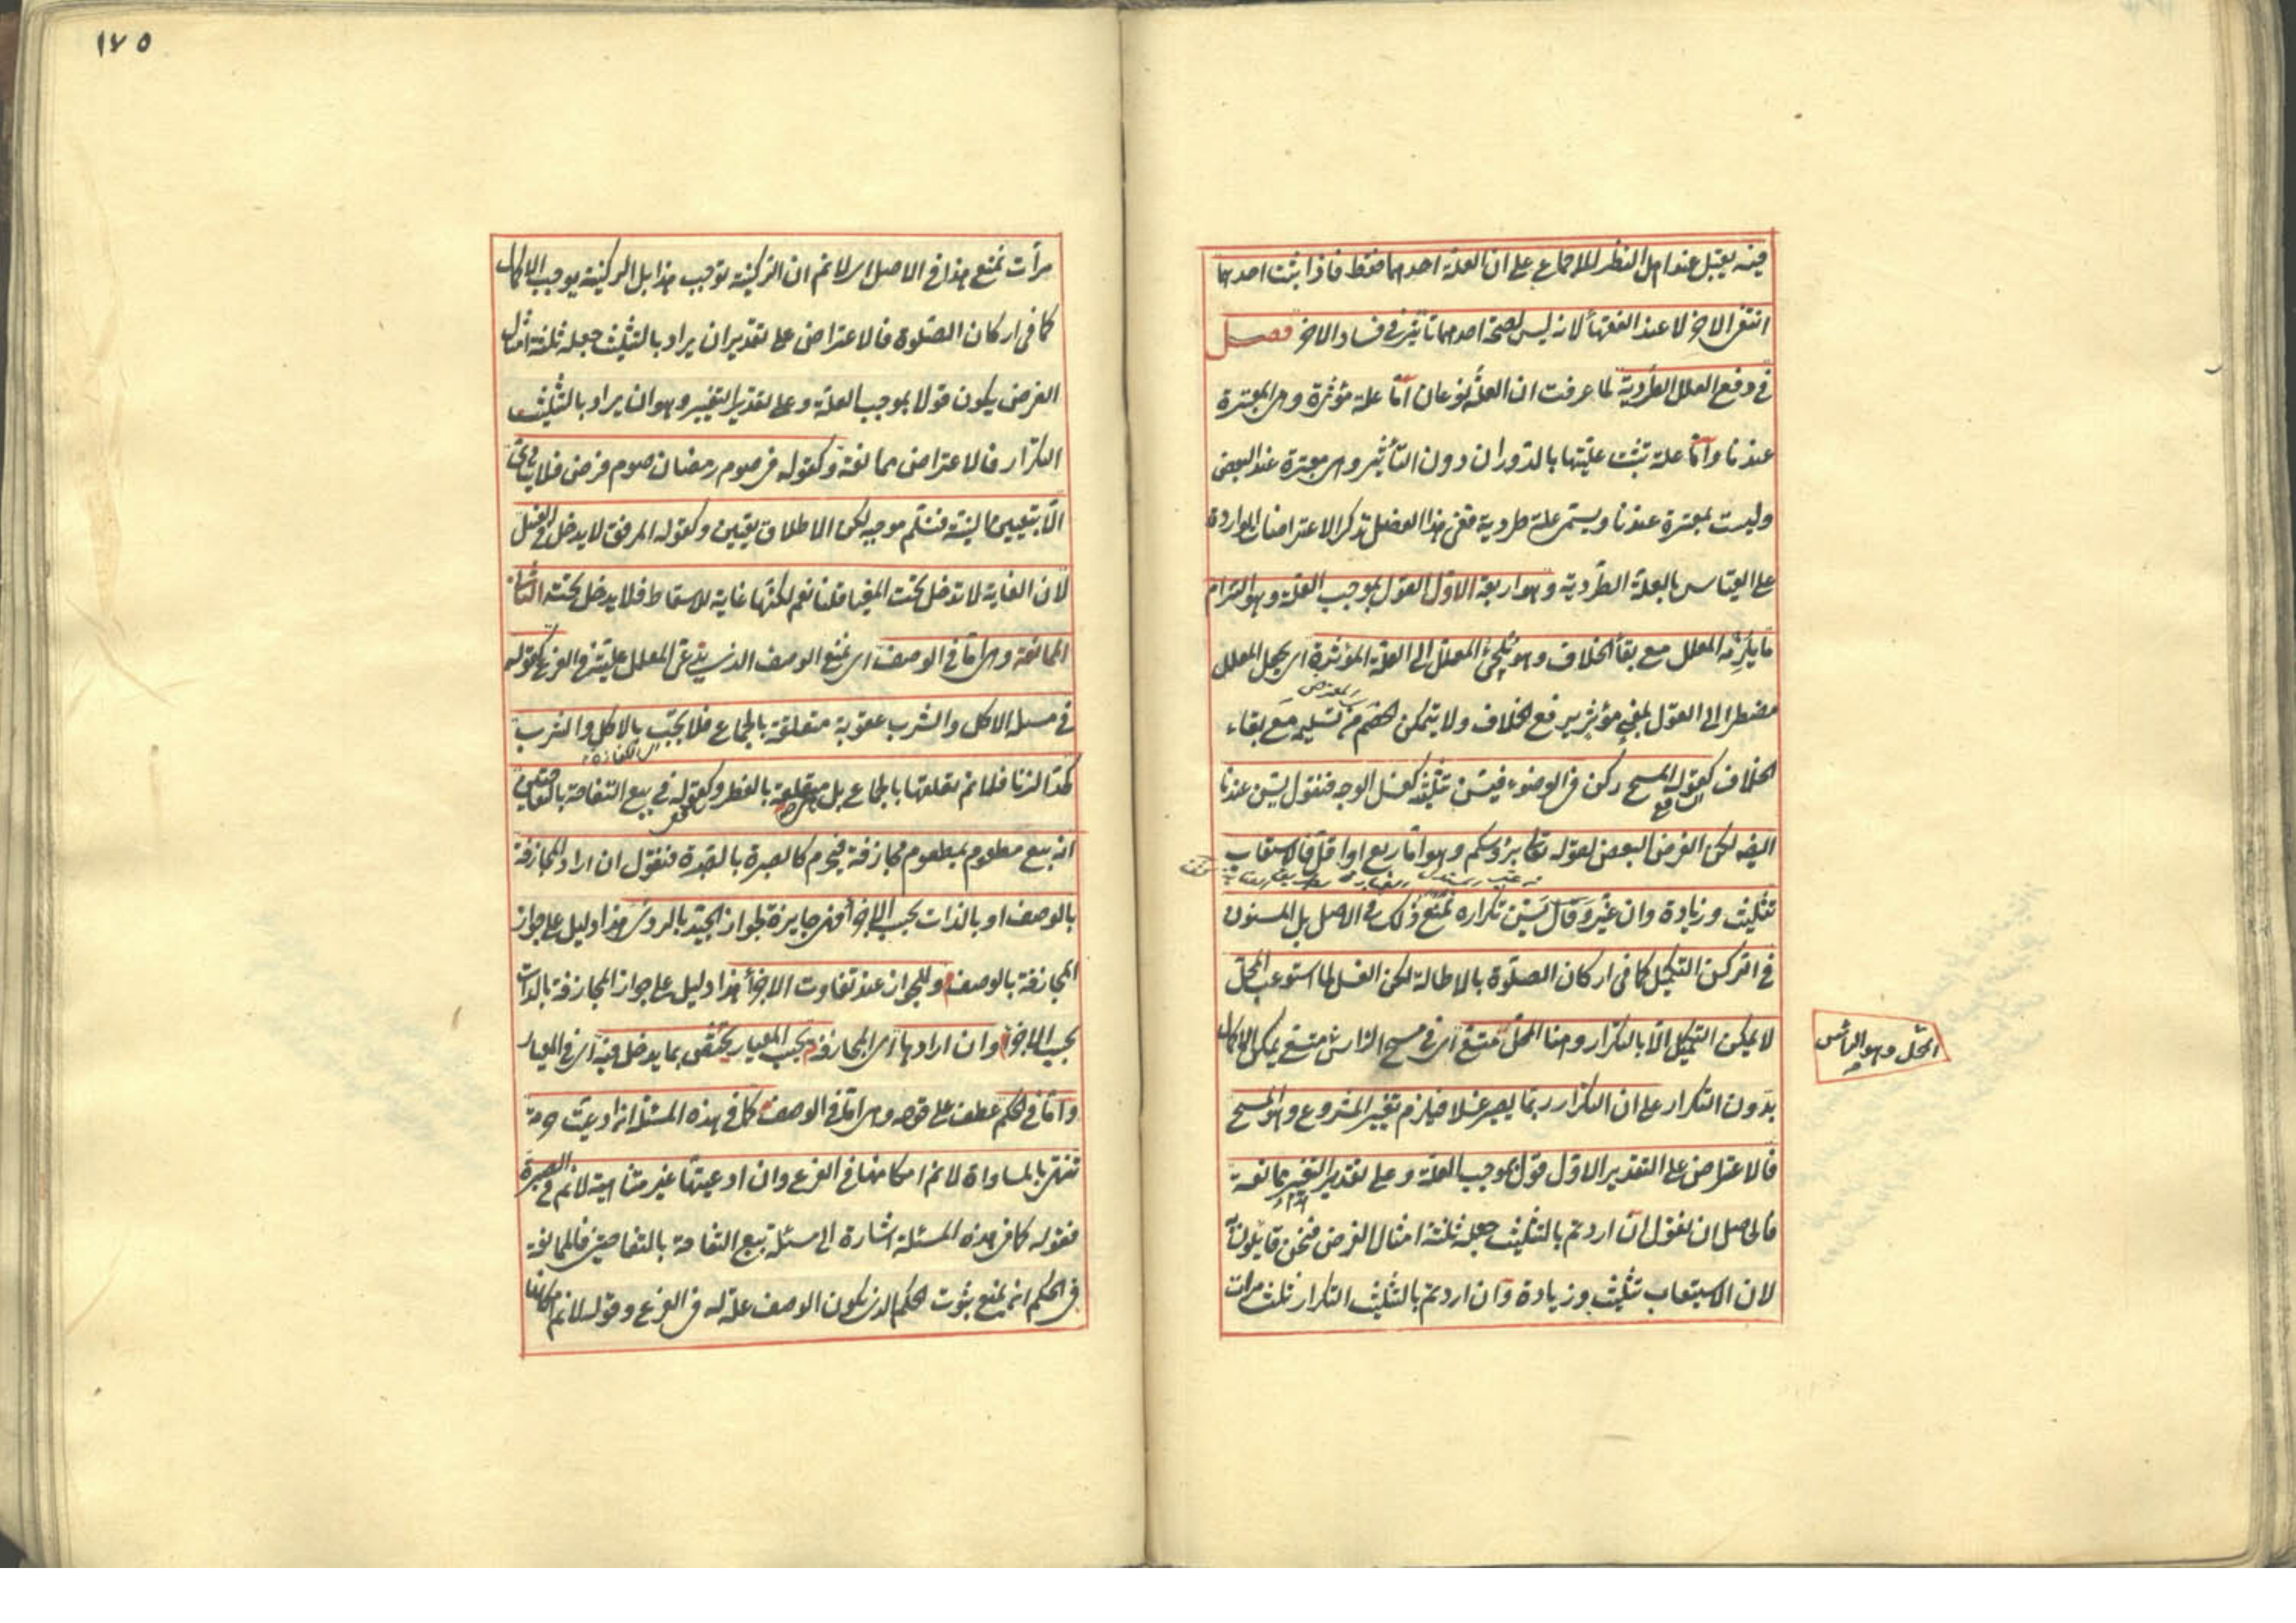 فيه يقبل عند اهل النظر للاجماع على ان العلة احدهما فقط فاذا ثبت احدهما
انتفى الاخر لا عند الفقهاء لانه ليس لصحة احدهما تاثير في فساد الاخر فصل
في دفع العلل الطردية لما عرفت ان العلة نوعان اما علة مؤثرة وهى المعتبرة
عندنا واما علة تثبت عليتها بالدوران دون التأثير وهى معتبرة عند البعض
وليست بمعتبرة عندنا ويسمى علة طردية ففى هذا الفصل نذكر الاعتراضات الواردة
على القياس بالعلة الطردية وهو اربعة الاول القول بموجب العلة وهو التزام
ما يلزمه المعلل مع بقاء الخلاف وهو يلجئ المعلل الى العلة المؤثرة اى يجعل المعلل
مضطرا الى القول بمعنى مؤثر يرفع الخلاف ولا يتمكن الخصم من تسليمه مع بقاء
الخلاف كقوله المسح ركن فى الوضوء فيسن تثليثه كغسل الوجه فنقول يسن عندنا
ايضه لكن الفرض البعض لقوله تعالى برؤسكم وهو اما ربع او اقل فالاستيعاب
تثليث وزيادة وان غير وقال يسن تكراره نمنع ذلك فى الاصل بل المسنون
فى الركن التكميل كما فى اركان الصلوة بالاطالة لكن الغسل لما استوعب المحل
لا يمكن التكميل الا بالتكرار وهنا المحل متسع اى فى مسح الراس متسع يمكن الاكمال
المحل وهو الراس
بدون التكرار على ان التكرار ربما يصير غسلا فيلزم تغيير المشروع وهو المسح
فالاعتراض على التقدير الاول قول بموجب العلة وعلى تقدير التغيير ممانعة
فالحاصل ان نقول ان اردتم بالتثليث جعله ثلثة امثال الفرض فنحن قايلون به
لان الاستيعاب تثليث وزيادة وان اردتم بالتثليث التكرار ثلث مرات
١٧٥
مرات نمنع هذا فى الاصل اى لا نم ان الركنية توجب هذا بل الركنية يوجب الاكمال
كما فى اركان الصلوة فالاعتراض على تقدير ان يراد بالتثليث جعله ثلثة امثال
الفرض يكون قولا بموجب العلة وعلى تقدير التغيير وهو ان يراد بالتثليث
التكرار فالاعتراض ممانعة وكقوله فى صوم رمضان صوم فرض فلا يتادى
الا بتعيين النية فنسلم موجبه لكن الاطلاق تعيين وكقوله المرفق لا يدخل فى الغسل
لان الغاية لا تدخل تحت المغيا قلنا نعم لكنها غاية للاسقاط فلا يدخل تحته الثانى
الممانعة وهى اما فى الوصف اى نمنع الوصف الذى يدعى المعلل عليته فى الفرع كقوله
فى مسئلة الاكل والشرب عقوبة متعلقة بالجماع فلا يجب بالاكل والشرب
كحد الزنا فلا نم تعلقها بالجماع بل متعلقة بالفطر وكقوله فى بيع التفاحة بالتفاحتين
انه بيع مطعوم بمطعوم مجازفة فيحرم كالصبرة بالصبرة فنقول ان اراد المجازفة
بالوصف او بالذات بحسب الاجزاء فهى جايزة لجواز الجيد بالردى هذا دليل على جواز
المجازفة بالوصف وللجواز عند تفاوت الاجزاء هذا دليل على جواز المجازفة بالذات
بحسب الاجزاء وان اراد بها اى المجازفة بحسب المعيار يختص بما يدخل فيه اى فى المعيار
واما فى الحكم عطف على قوله وهى اما فى الوصف كما فى هذه المسئلة ان ادعيت حرمة
تنتهى بالمساواة لا نم امكانها فى الفرع وان ادعيتها غير متناهية لا نم فى الصبرة
فقوله كما فى هذه المسئلة اشارة الى مسئلة بيع التفاحة بالتفاحتين فالممانعة
فى الحكم انه نمنع ثبوت الحكم الذى يكون الوصف علة له فى الفرع وقوله لا نم امكانها